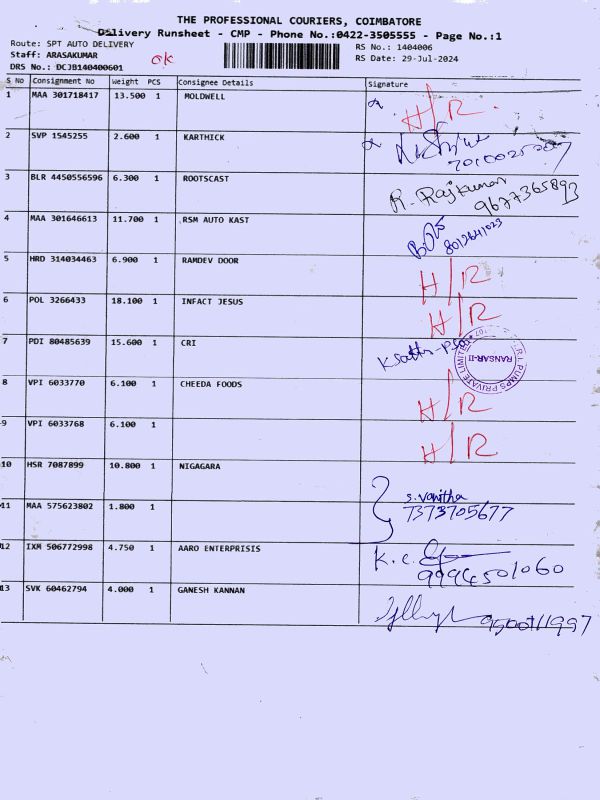 THE PROFESSIONAL COURIERS, COIMBATORE
Delivery Runsheet - CMP - Phone No.:0422-3505555 - Page No.:1
Route: SPT AUTO DELIVERY RS No.: 1404006
Staff: ARASAKUMAR ok RS Date: 29-Jul-2024
DRS No.: DCJB140400601
S No Consignment No Weight PCS Consignee Details Signature
1 MAA 301718417 13.500 1 MOLDWELL H/R
2 SVP 1545255 2.600 1 KARTHICK
3 BLR 4450556596 6.300 1 ROOTSCAST R. Rajkumar
9677365893
4 MAA 301646613 11.700 1 RSM AUTO KAST
5 HRD 314034463 6.900 1 RAMDEV DOOR H/R
6 POL 3266433 18.100 1 INFACT JESUS H/R
7 PDI 80485639 15.600 1 CRI
PUMPS PRIVATE LIMITED
RANSAR-II
8 VPI 6033770 6.100 1 CHEEDA FOODS H/R
9 VPI 6033768 6.100 1 H/R
10 HSR 7087899 10.800 1 NIGAGARA S. Vanitha
11 MAA 575623802 1.800 1 7373705677
12 IXM 506772998 4.750 1 AARO ENTERPRISIS K. C.
9994501060
13 SVK 60462794 4.000 1 GANESH KANNAN